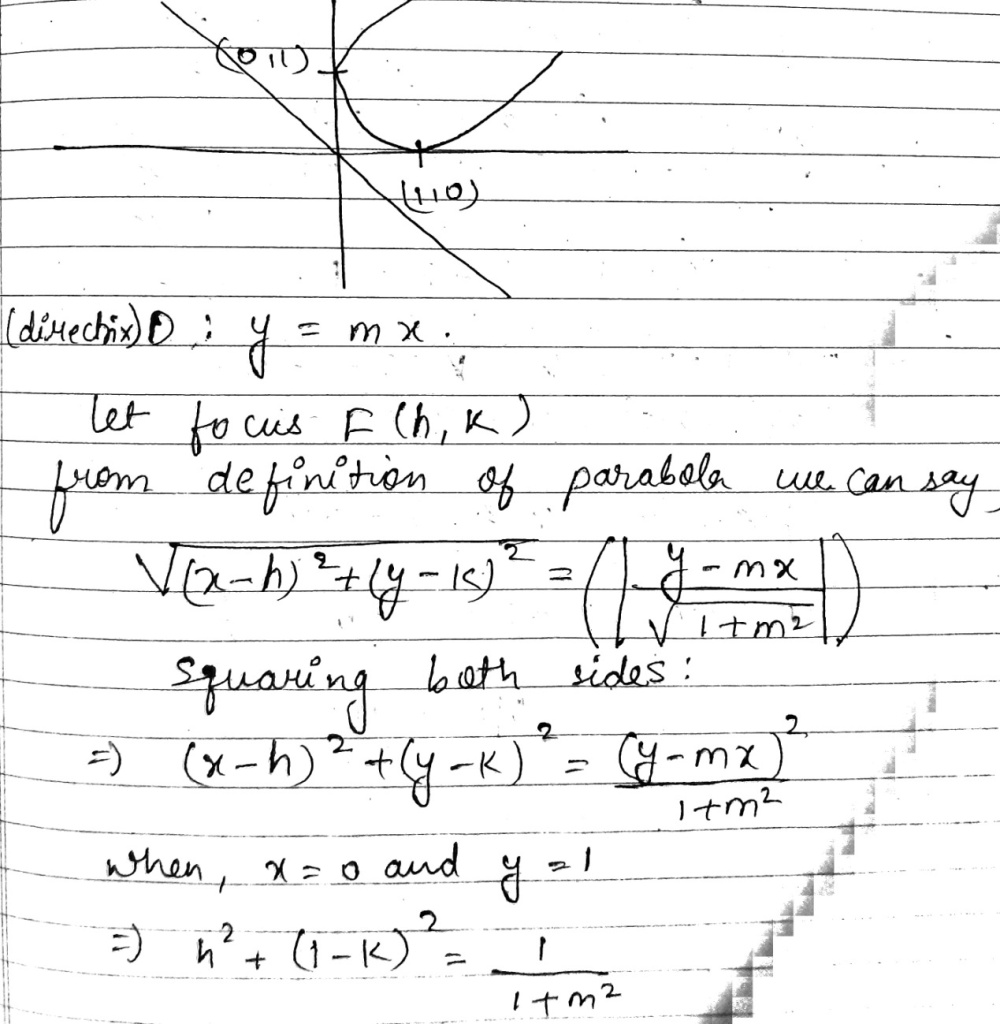 (0,1)
(1,0)
(directrix) D : y = mx.
let focus F(h, k)
from definition of parabola we can say,
√(x-h)²+(y-k)² = (|y-mx / √1+m²|)
squaring both sides:
=) (x-h)²+(y-k)² = (y-mx)² / 1+m²
when, x=0 and y=1
=) h²+(1-k)² = 1 / 1+m²